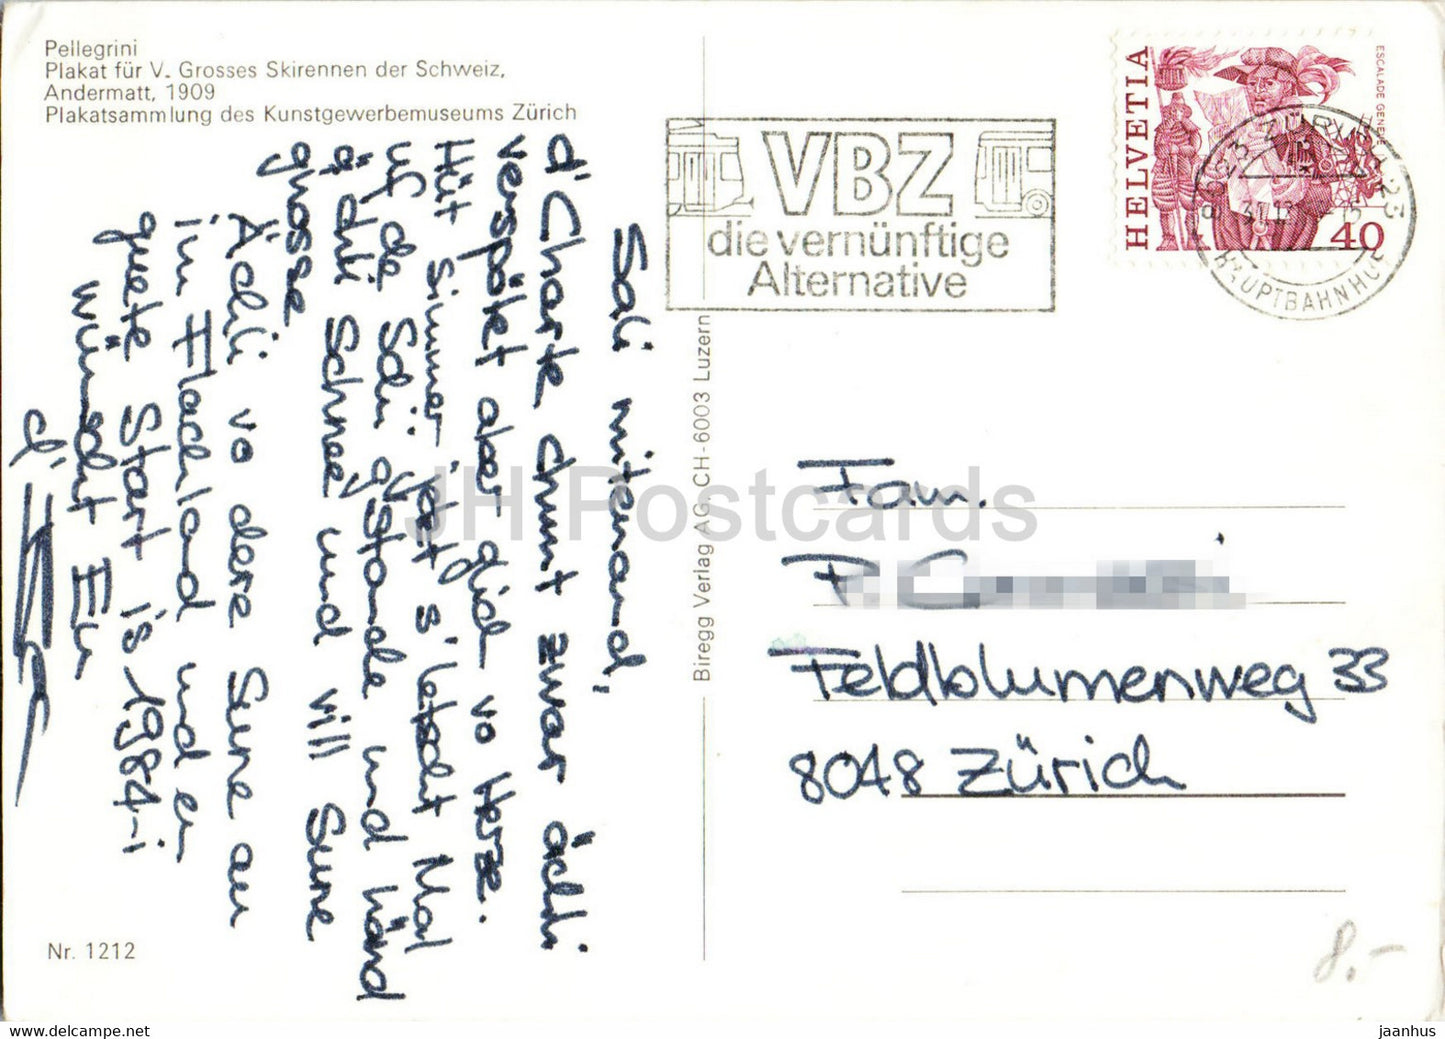 Pellegrini
Plakat für V. Grosses Skirennen der Schweiz,
Andermatt, 1909
Plakatsammlung des Kunstgewerbemuseums Zürich
Sali mitenand,
d'Charte chunt zwar ächli
verspötet aber glich vo Herze.
Hüt simmer jetzt s'letscht Mal
uf de Schi gstande und händ
ächli Schnee und vill Sune
gnosse
Ächli vo dere Sune au
im Flachland und en
guete Start is 1984-i
wünscht Eu
d'
Nr. 1212
Biregg Verlag AG, CH-6003 Luzern
VBZ
die vernünftige
Alternative
HELVETIA
ESCALADE GENÈVE
40
8023 ZÜRICH 23
31.12
HAUPTBAHNHOF
Fam.
Feldblumenweg 33
8048 Zürich
8.-
JH Postcards
https://www.delcampe.net
jaanhus